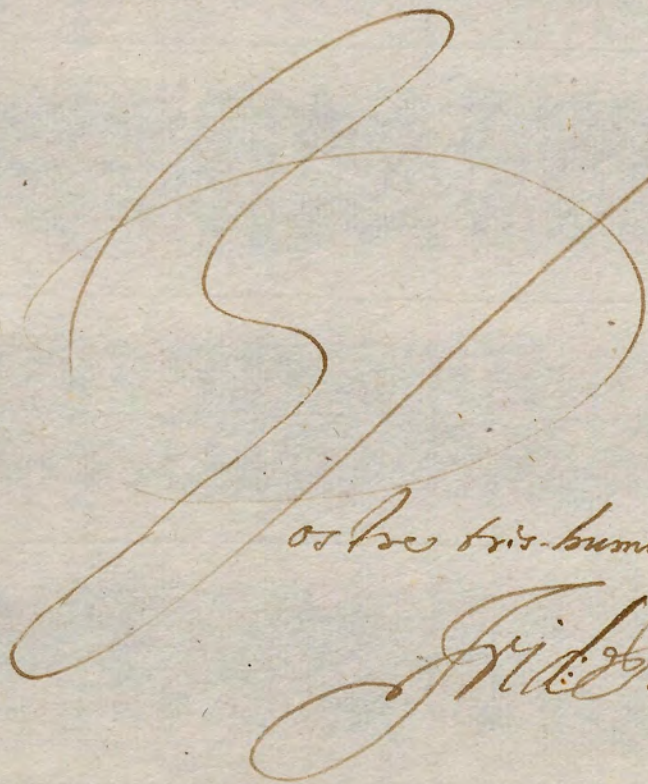 Vostre tris-hum
Frid: